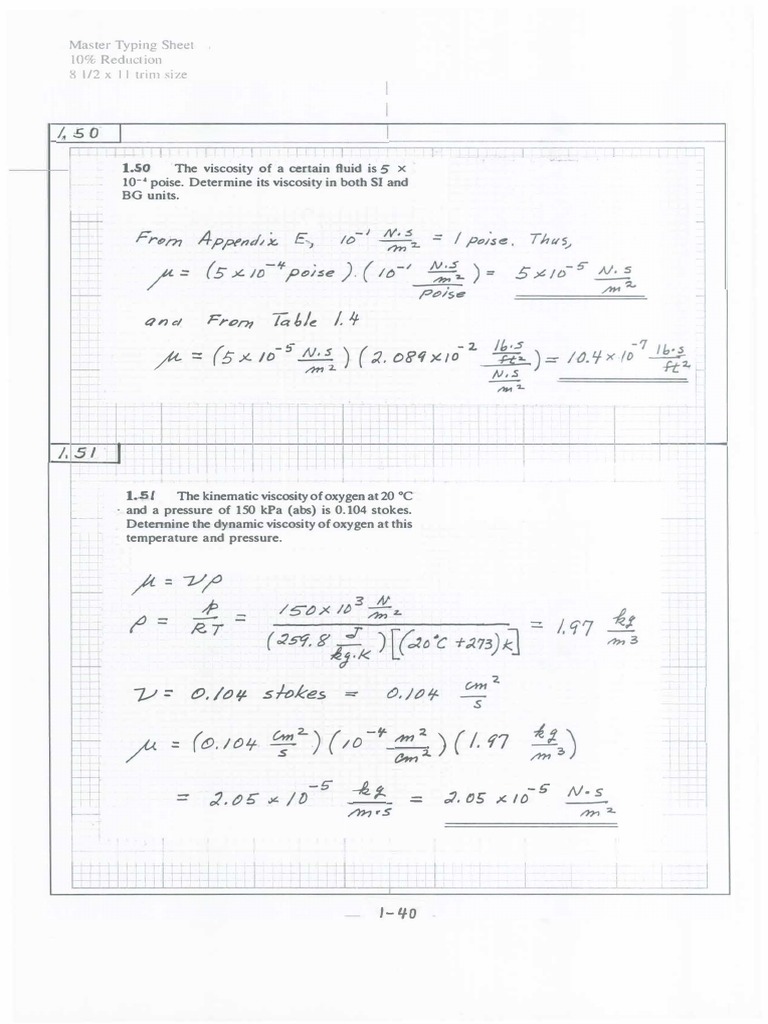 Master Typing Sheet
10% Reduction
8 1/2 x 11 trim size
1.50
1.50 The viscosity of a certain fluid is 5 ×
10⁻⁴ poise. Determine its viscosity in both SI and
BG units.
From Appendix E, 10⁻¹ N·s/m² = 1 poise. Thus,
μ = (5 × 10⁻⁴ poise).(10⁻¹ (N·s/m²)/poise) = 5 × 10⁻⁵ N·s/m²
and From Table 1.4
μ = (5 × 10⁻⁵ N·s/m²)(2.089 × 10⁻² (lb·s/ft²)/(N·s/m²)) = 10.4 × 10⁻⁷ lb·s/ft²
1.51
1.51 The kinematic viscosity of oxygen at 20 °C
and a pressure of 150 kPa (abs) is 0.104 stokes.
Determine the dynamic viscosity of oxygen at this
temperature and pressure.
μ = νρ
ρ = p/RT = (150 × 10³ N/m²)/((259.8 J/kg·K)[(20°C + 273)K]) = 1.97 kg/m³
ν = 0.104 stokes = 0.104 cm²/s
μ = (0.104 cm²/s)(10⁻⁴ m²/cm²)(1.97 kg/m³)
= 2.05 × 10⁻⁵ kg/m·s = 2.05 × 10⁻⁵ N·s/m²
1-40